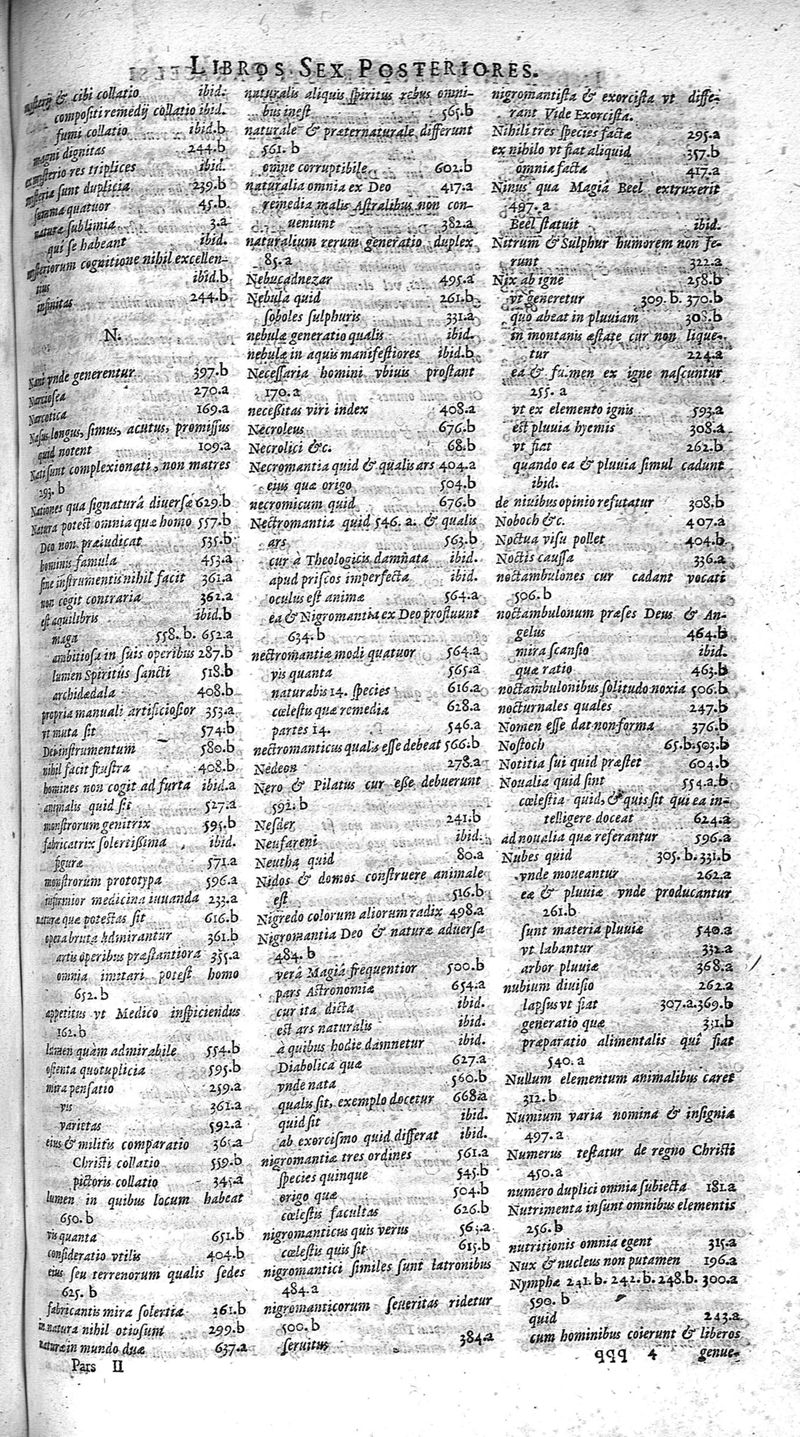 LIBROS SEX POSTERIORES.
mysterij & cibi collatio ibid.
compositi remedij collatio ibid.
fumi collatio ibid.b
magni dignitas 244.b
ex mysterio res triplices ibid.
mysteria sunt duplicia 239.b
summa quatuor 45.b
naturæ sublimia 3.a
qui se habeant ibid.
mysteriorum cognitione nihil excellen-
tius ibid.b
infinitas 244.b
N.
Nani vnde generentur 397.b
Narciosea 270.a
Narcotica 169.a
Nasus longus, simus, acutus, promissus
quid notent 109.a
Nati sunt complexionati, non matres
293.b
Nationes qua signaturâ diuersæ 629.b
Natura potest omnia quæ homo 557.b
Deo non præiudicat 535.b
hominis famula 453.a
sine instrumentis nihil facit 361.a
non cogit contraria 362.a
est æquilibris ibid.b
maga 558.b. 652.a
ambitiosa in suis operibus 287.b
lumen Spiritus sancti 518.b
archidædala 408.b
propria manuali artificiosior 353.a
vt muta sit 574.b
Dei instrumentum 580.b
nihil facit frustra 408.b
homines non cogit ad furta ibid.a
animalis quid sit 527.a
monstrorum genitrix 595.b
fabricatrix solertissima ibid.
figuræ 571.a
monstrorum prototypa 596.a
infirmior medicina iuuanda 233.a
naturæ quæ potestas sit 616.b
opera bruta admirantur 361.b
artis operibus præstantiora 355.a
omnia imitari potest homo
652.b
appetitus vt Medico inspiciendus
162.b
lumen quàm admirabile 554.b
ostenta quotuplicia 595.b
mira pensatio 259.a
vis 361.a
varietas 592.a
eius & militis comparatio 365.a
Christi collatio 559.b
pictoris collatio 345.a
lumen in quibus locum habeat
650.b
vis quanta 651.b
consideratio vtilis 404.b
eius seu terrenorum qualis sedes
625.b
fabricantis mira solertia 261.b
in natura nihil otiosum 299.b
naturæ in mundo duæ 637.a
Pars II
naturalis aliquis spiritus rebus omni-
bus inest 565.b
naturale & præternaturale differunt
561.b
omne corruptibile 602.b
naturalia omnia ex Deo 417.a
remedia malis Astralibus non con-
ueniunt 382.a
naturalium rerum generatio duplex
85.a
Nebucadnezar 495.a
Nebula quid 261.b
soboles sulphuris 331.a
nebulæ generatio qualis ibid.
nebulæ in aquis manifestiores ibid.b
Necessaria homini vbiuis prostant
170.a
necessitas viri index 408.a
Necroleus 676.b
Necrolici &c. 68.b
Necromantia quid & qualis ars 404.a
eius quæ origo 504.b
necromicum quid 676.b
Nectromantia quid 546.a. & qualis
ars 563.b
cur à Theologicis damnata ibid.
apud priscos imperfecta ibid.
oculus est animæ 564.a
ea & Nigromantia ex Deo profluunt
634.b
nectromantiæ modi quatuor 564.a
vis quanta 565.a
naturabis 14. species 616.a
cœlestis quæ remedia 628.a
partes 14. 546.a
nectromanticus qualis esse debeat 566.b
Nedeon 278.a
Nero & Pilatus cur esse debuerunt
592.b
Nesder 241.b
Neufareni ibid.
Neutha quid 80.a
Nidos & domos construere animale
est 516.b
Nigredo colorum aliorum radix 498.a
Nigromantia Deo & naturæ aduersa
484.b
verâ Magiâ frequentior 500.b
pars Astronomiæ 654.a
cur ita dicta ibid.
est ars naturalis ibid.
à quibus hodie damnetur ibid.
Diabolica quæ 627.a
vnde nata 560.b
qualis sit, exemplo docetur 668.a
quid sit ibid.
ab exorcismo quid differat ibid.
nigromantiæ tres ordines 561.a
species quinque 545.b
origo quæ 504.b
cœlestis facultas 626.b
nigromanticus quis verus 563.a
cœlestis quis sit 615.b
nigromantici similes sunt latronibus
484.a
nigromanticorum seueritas ridetur
500.b
seruitus 384.a
nigromantista & exorcista vt diffe-
rant Vide Exorcista.
Nihili tres species factæ 295.a
ex nihilo vt fiat aliquid 357.b
omnia facta 417.a
Ninus qua Magiâ Beel extruxerit
497.a
Beel statuit ibid.
Nitrum & Sulphur humorem non fe-
runt 322.a
Nix ab igne 258.b
vt generetur 309.b. 370.b
quo abeat in pluuiam 308.b
in montanis æstate cur non lique-
tur 224.a
ea & fulmen ex igne nascuntur
255.a
vt ex elemento ignis 593.a
est pluuia hyemis 308.a
vt fiat 262.b
quando ea & pluuia simul cadunt
ibid.
de niuibus opinio refutatur 308.b
Noboch &c. 407.a
Noctua visu pollet 404.b
Noctis caussa 336.a
noctambulones cur cadant vocati
506.b
noctambulonum præses Deus & An-
gelus 464.b
mira scansio ibid.
quæ ratio 463.b
noctambulonibus solitudo noxia 506.b
nocturnales quales 247.b
Nomen esse dat non forma 376.b
Nostoch 65.b.503.b
Notitia sui quid præstet 604.b
Noualia quid sint 554.a.b
cœlestia quid, & quis sit qui ea in-
telligere doceat 624.a
ad noualia quæ referantur 596.a
Nubes quid 305.b.331.b
vnde moueantur 262.a
eæ & pluuiæ vnde producantur
261.b
sunt materia pluuiæ 540.a
vt labantur 332.a
arbor pluuiæ 368.a
nubium diuisio 262.a
lapsus vt fiat 307.a.369.b
generatio quæ 331.b
præparatio alimentalis qui fiat
540.a
Nullum elementum animalibus caret
312.b
Numium varia nomina & insignia
497.a
Numerus testatur de regno Christi
450.a
numero duplici omnia subiecta 181.a
Nutrimenta insunt omnibus elementis
256.b
nutritionis omnia egent 315.a
Nux & nucleus non putamen 196.a
Nymphæ 241.b. 242.b. 248.b. 300.a
590.b
quid 243.a
cum hominibus coierunt & liberos
qqq 4 genue-